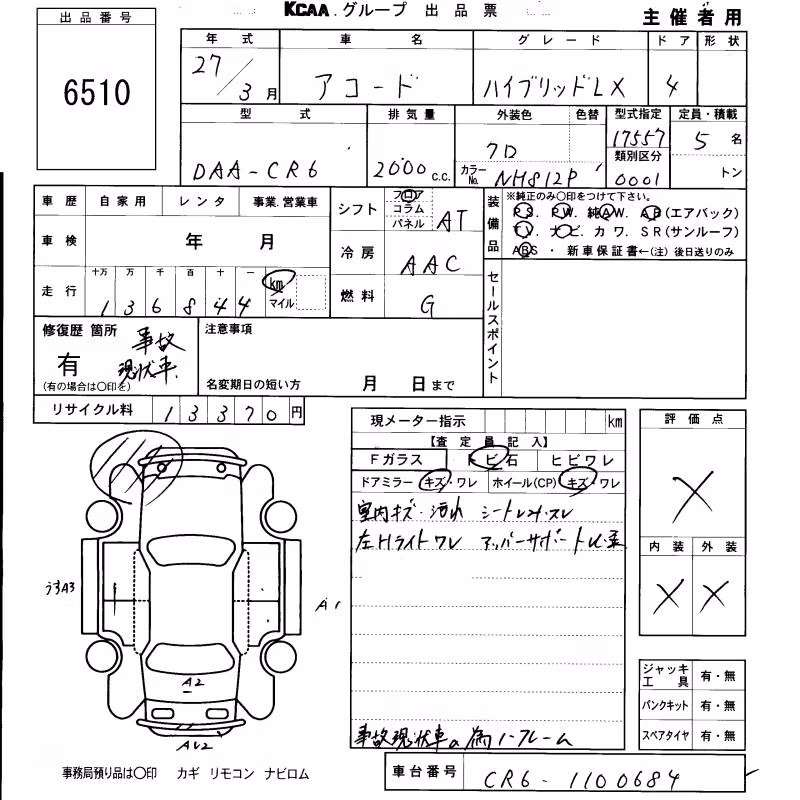 KCAA.グループ 出品票
主催者用
出品番号
6510
年式 車名 グレード ドア 形状
27/3月 アコード ハイブリッドLX 4
型式 排気量 外装色 色替 型式指定 定員・積載
DAA-CR6 2000c.c. クロ カラーNo. NH812P 17557 5名
類別区分 0001 トン
車歴 自家用 レンタ 事業.営業車
車検 年 月
走行 十万 万 千 百 十 一 km マイル
1 3 6 8 4 4
シフト フロア コラム パネル AT
冷房 AAC
燃料 G
装備品
※純正のみ〇印をつけて下さい。
P S. P W. 純A W. A B(エアバック)
T V. ナ ビ. カ ワ. S R(サンルーフ)
A B S ・ 新車保証書←(注) 後日送りのみ
セールスポイント
修復歴 箇所 事故
有 現状車.
(有の場合は〇印を)
注意事項
名変期日の短い方 月 日まで
リサイクル料 13370円
現メーター指示 km
【査定員記入】
Fガラス トビ石 ヒビワレ
ドアミラー キズ・ワレ ホイール(CP) キズ・ワレ
室内キズ・汚れ シート
左Hライトワレ アッパーサポート
事故現状車の為ノークレーム
評価点
×
内装 外装
× ×
うすA3
A1
A2
ジャッキ工具 有・無
パンクキット 有・無
スペアタイヤ 有・無
事務局預り品は〇印 カギ リモコン ナビロム
車台番号 CR6-1100684